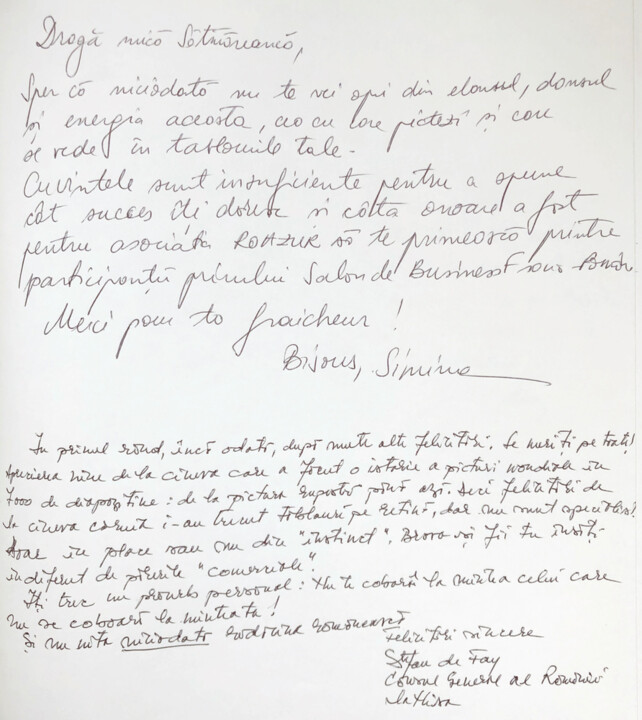 Dragă mică Sătmăreancă,
Sper că niciodată nu te vei opri din elansul, dansul
și energia aceasta, cea cu care pictezi și care
se vede în tablourile tale.
Cuvintele sunt insuficiente pentru a spune
cât succes îți doresc și câtă onoare a fost
pentru asociația să te primească printre
participanții primului Salon de Business Franco-Român.
Merci pour ta fraicheur!
Bisous, Simina
In primul rând, încă odată, după multe alte felicitări. Le meriți pe toate!
vine de la cineva care a făcut o istorie a picturi mondiale în
7000 de diapozitive: de la pictura rupestră până azi. Deci felicitări de
la cineva căruia i-au trecut tablouri pe retină, dar nu sunt specialist!
doar îmi place sau nu din "instinct". Bravo și fii tu însăți
indiferent de părerile "comerciale".
Îți trec un proverb personal: Nu te coborî la mintea celui care
nu se coboară la mintea ta!
Și nu uita niciodată rădăcina românească
Felicitări sincere
Ștefan de Fay
Consul General al României
la Nisa